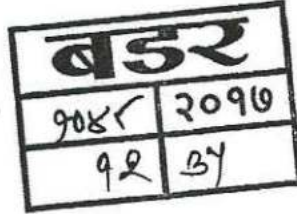 बडर
१०४८ २०१७
१२ ३५